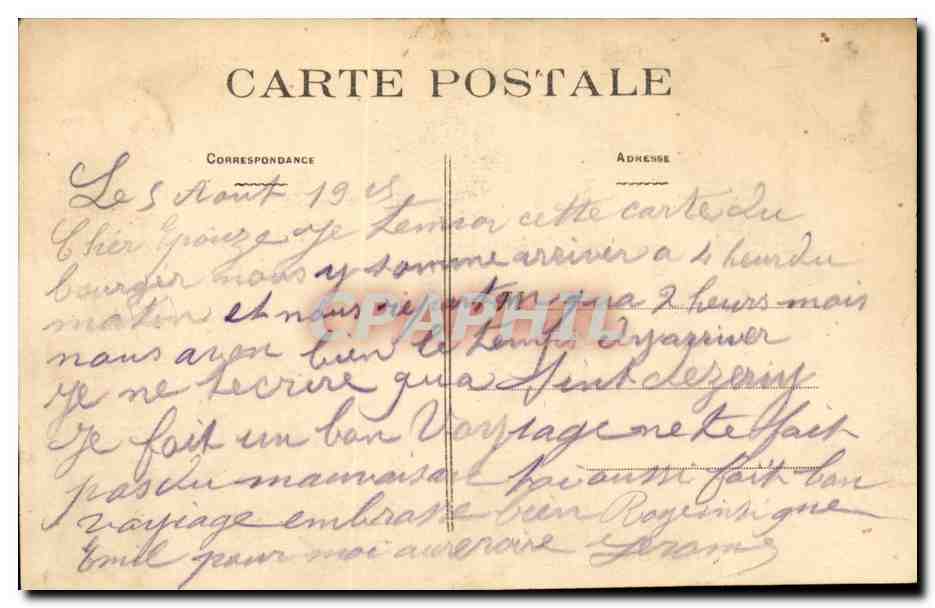 CARTE POSTALE
CORRESPONDANCE
ADRESSE
Le 5 Aout 19
Cher Epouze Je temvoi cette carte du
bourger nous y somme arriver a 4 heur du
maton et nous repartm qua 2 heurs mais
nous avon bien le temps dy arriver
Je ne tecrire qua Sint
Je fait un bon Voyiage ne te fait
pas du mauvais toi oussi fait bon
voyiage embrasse bien que
Emil pour moi aureroire
CPAPHIL